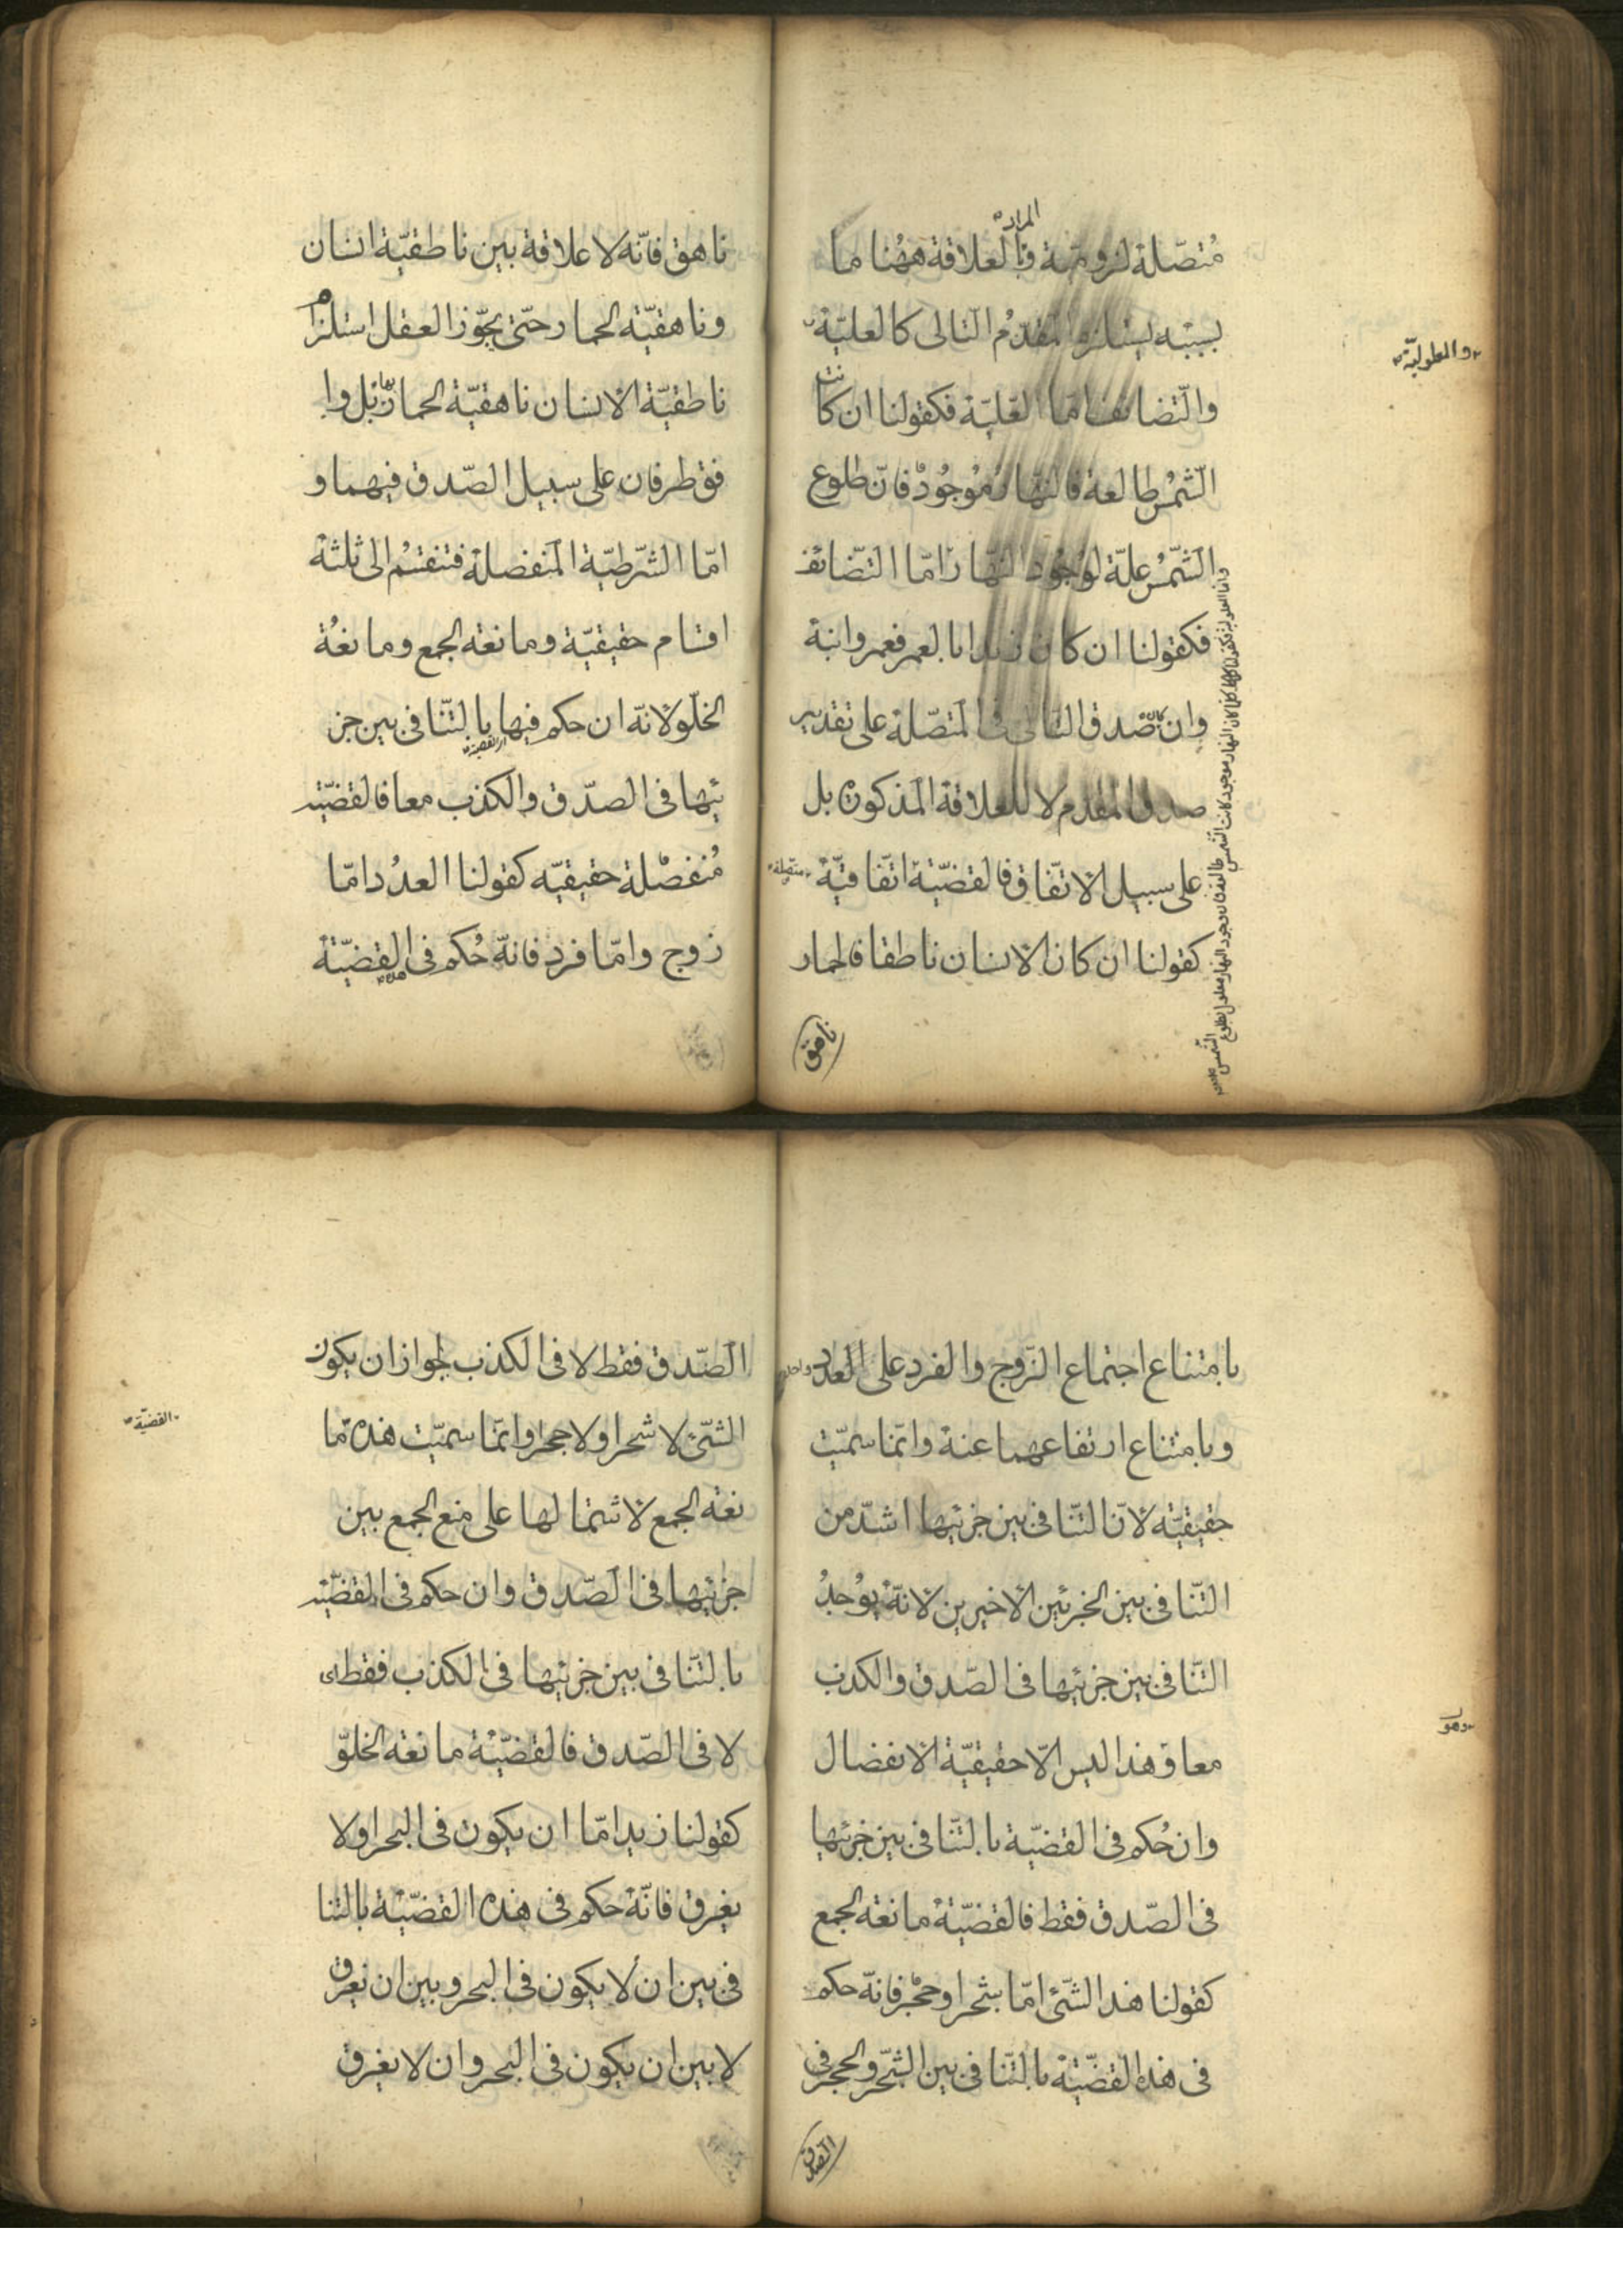 المراد
مُتصّلة لزومية والعلاقة ههُنا ما
بسببه يستلزم المقدّمُ التالى كالعليّة
والمعلوليّة
والتّضايف امّا العّليّة فكقولنا ان كانت
الشّمسُ طالعة فالنّهارُ موُجُودٌ فانّ طلوع
الشّمسُ علّة لوُجُود النّهار وامّا التّضائف
فكقولنا ان كان زيد ابا لعمر فعمر وابنه
وان كان صدق التّالى فى المتصّلة على تقدير
صدق المقدم لا للعلاقة المذكورة بل
على سبيل الاتّفاق فالقضيّة اتّفاقيّةٌ
متّصلة
كقولنا ان كان الانسان ناطقا فالحمار
واما المعلولية فكقولنا كلما كان النهار موجود كانت الشّمس طالعة فان وجود النهار معلول بطلوع الشّمس
ناهق
ناهق فانّه لا علاقة بين ناطقيّة انسان
وناهقيّة الحمار حتّى يجّوز العقل استلزام
ناطقيّة الانسان ناهقيّة الحمار بل وا
فق طرفان على سبيل الصّدق فيهما و
امّا الشّرطيّة المنفصلة فتنقسمُ الى ثلثة
اقسام حقيقيّة ومانعة الجمع ومانعُة
الخلّو لانّه ان حكم فيها بالتّنافى بين جز
اى القضية
ئيها فى الصدّق والكذب معا فالقضيّة
مُنفصْلة حقيقيّه كقولنا العدُد امّا
زوج وامّا فرد فانّه حُكم فى القضيّة
هذه
بامتناع اجتماع الزّوج والفرد على العدد
واحد
وبامتناع ارتفاعهما عنهُ وانمّا سميّت
حقيقيّه لانّ التّنافى بين جزئيها اشدّ من
التّنافى بين الجزئين الاخيرين لانّه يوُجدُ
التّنافى بين جزئيها فى الصّدق والكذب
معا وهذا ليس الّا حقيقيّة الانفصال
وهو
وان حُكم فى القضيّة بالتّنافى بين جزئيها
فى الصّدق فقط فالقضيّة مانعة الجمع
كقولنا هذا الشّئ امّا شجر او حجْر فانّه حكم
فى هذه القضيّة بالتّنافى بين الشّجر والحجر فى
الصّدق
الصّدق فقط لا فى الكذب لجواز ان يكون
الشّئ لا شجرا ولا حجرا وانمّا سميّت هذه مّا
القضيّة
نعة الجمع لاشتمالها على منع الجمع بين
جزئيها فى الصّدق وان حكم فى القضيّة
بالتّنافى بين جزئيها فى الكذب فقط اى
لا فى الصّدق فالقضيّة مانعة الخلّو
كقولنا زيد امّا ان يكون فى البحر او لا
يغرق فانّه حكم فى هذه القضيّة بالتنا
فى بين ان لا يكون فى البحر وبين ان يغرق
لا بين ان يكون فى البحر وان لا يغرق